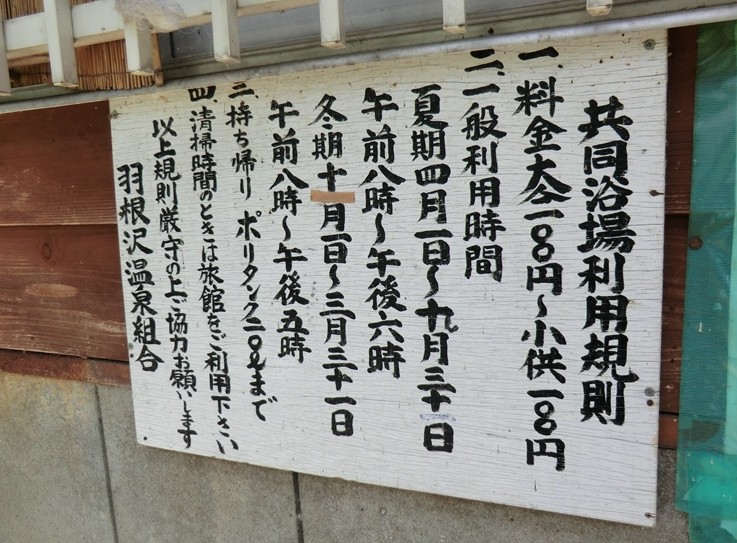 共同浴場利用規則
一、料金大人一〇〇円〜小供一〇〇円
二、一般利用時間
夏期四月一日〜九月三十日
午前八時〜午後六時
冬期十月一日〜三月三十一日
午前八時〜午後五時
三、持ち帰り ポリタンク二〇ℓまで
四、清掃時間のときは旅館をご利用下さい
以上規則厳守の上ご協力お願いします
羽根沢温泉組合